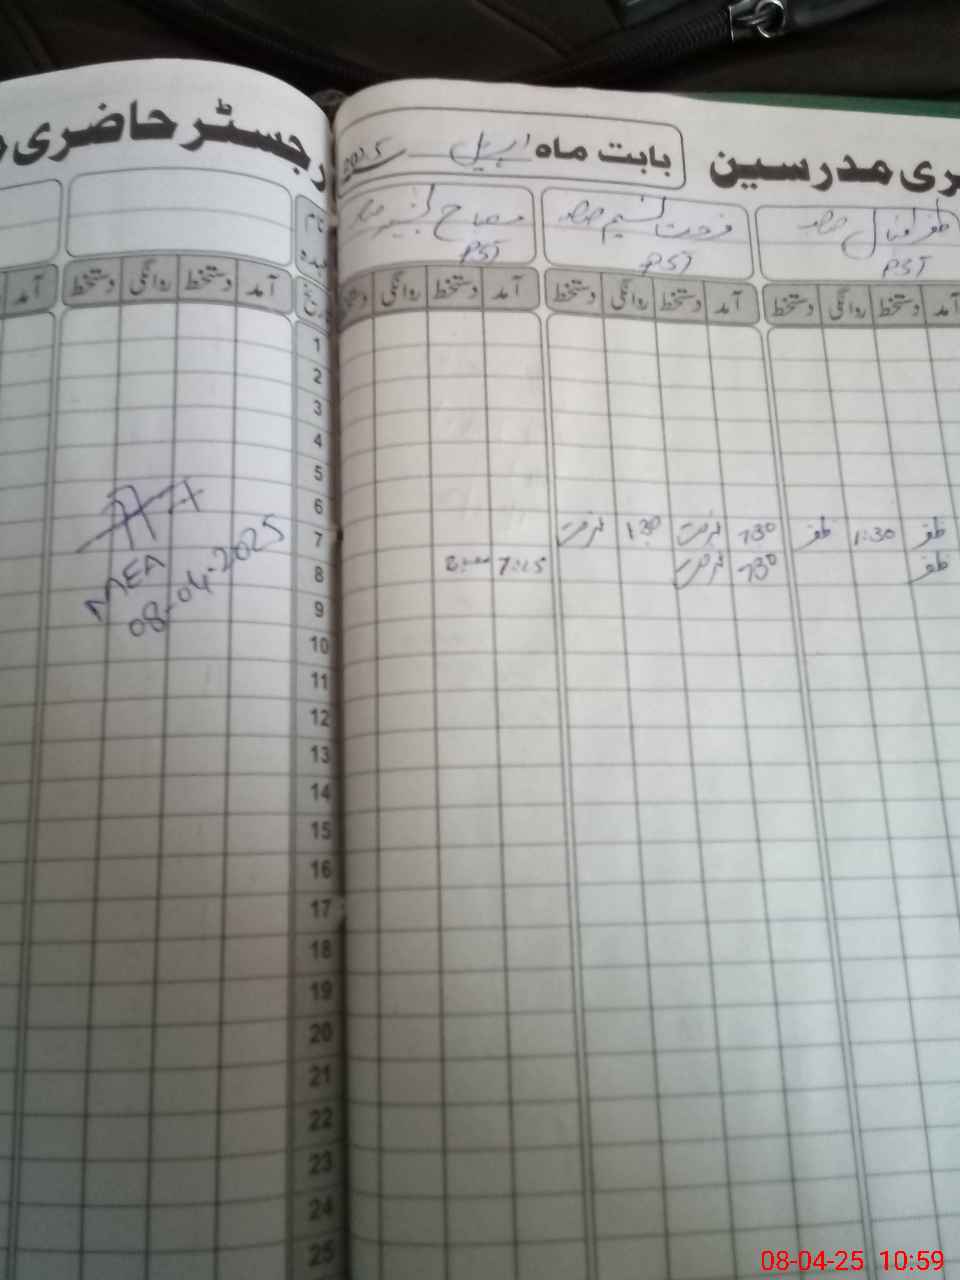 رجسٹر حاضری
ری مدرسین
بابت ماہ اپریل 2025
ظفر اقبال
PST
فرحت نسیم
PST
مصباح
PST
آمد دستخط روانگی دستخط
آمد دستخط روانگی دستخط
آمد دستخط روانگی
نام
تاریخ
آمد دستخط روانگی دستخط
آمد
1
2
3
4
5
6
7 ظفر 1:30 ظفر 730 فرحت 1:30 فرحت
8 ظفر 730 فرحت 7:25
9
10
11
12
13
14
15
16
17
18
19
20
21
22
23
24
25
MEA
08-04-2025
08-04-25 10:59